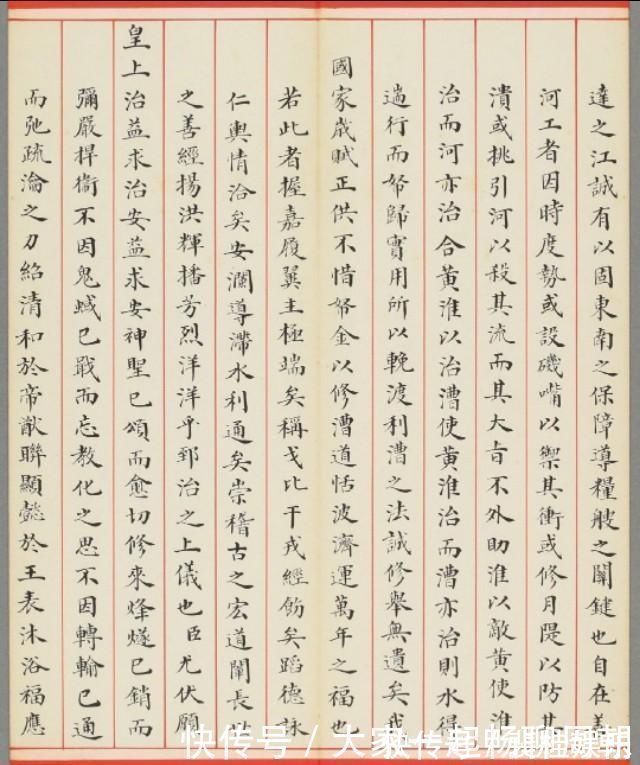 達之江誠有以固東南之保障導糧艘之關鍵也自在善
河工者因時度勢或設磯嘴以禦其衝或修月隄以防其
潰或挑引河以殺其流而其大旨不外助淮以敵黃使淮
治而河亦治合黃淮以治漕使黃淮治而漕亦治則水得
遄行而帑歸實用所以輓渡利漕之法誠修舉無遺矣我
國家歲賦正供不惜帑金以修漕道恬波濟運萬年之福也
若此者握嘉履翼主極端矣稱戈比干戎經飭矣蹈德詠
仁輿情洽矣安瀾導滯水利通矣崇稽古之宏道闡長以
之善經揚洪輝播芳烈洋洋乎郅治之上儀也臣尤伏願
皇上治益求治安益求安神聖已頌而愈切修來烽燧已銷而
彌嚴捍衞不因鬼蜮已戢而忘教化之思不因轉輸已通
而弛疏淪之力紹清和於帝猷聯顯懿於王表沐浴福應
快传号 /